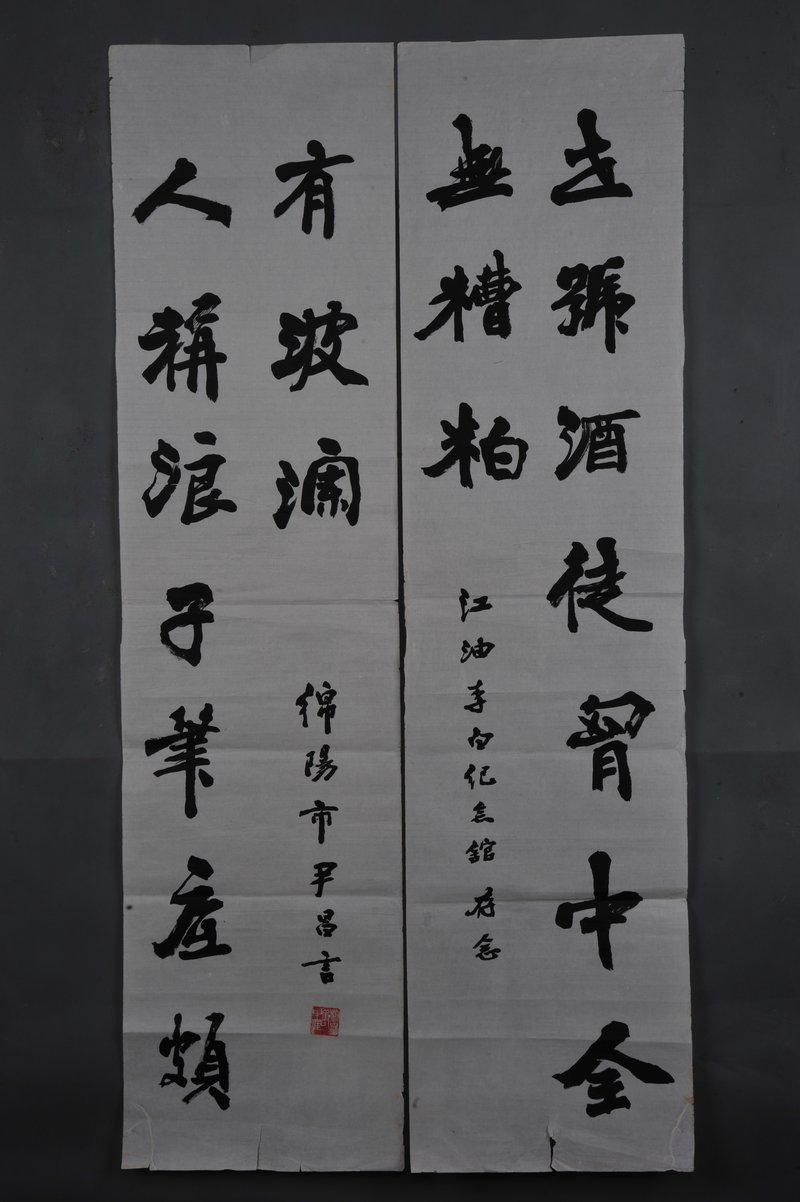 世號酒徒胷中全
無糟粕
江油李白纪念舘 存念
人稱浪子筆底頗
有波澜
綿陽市尹昌言